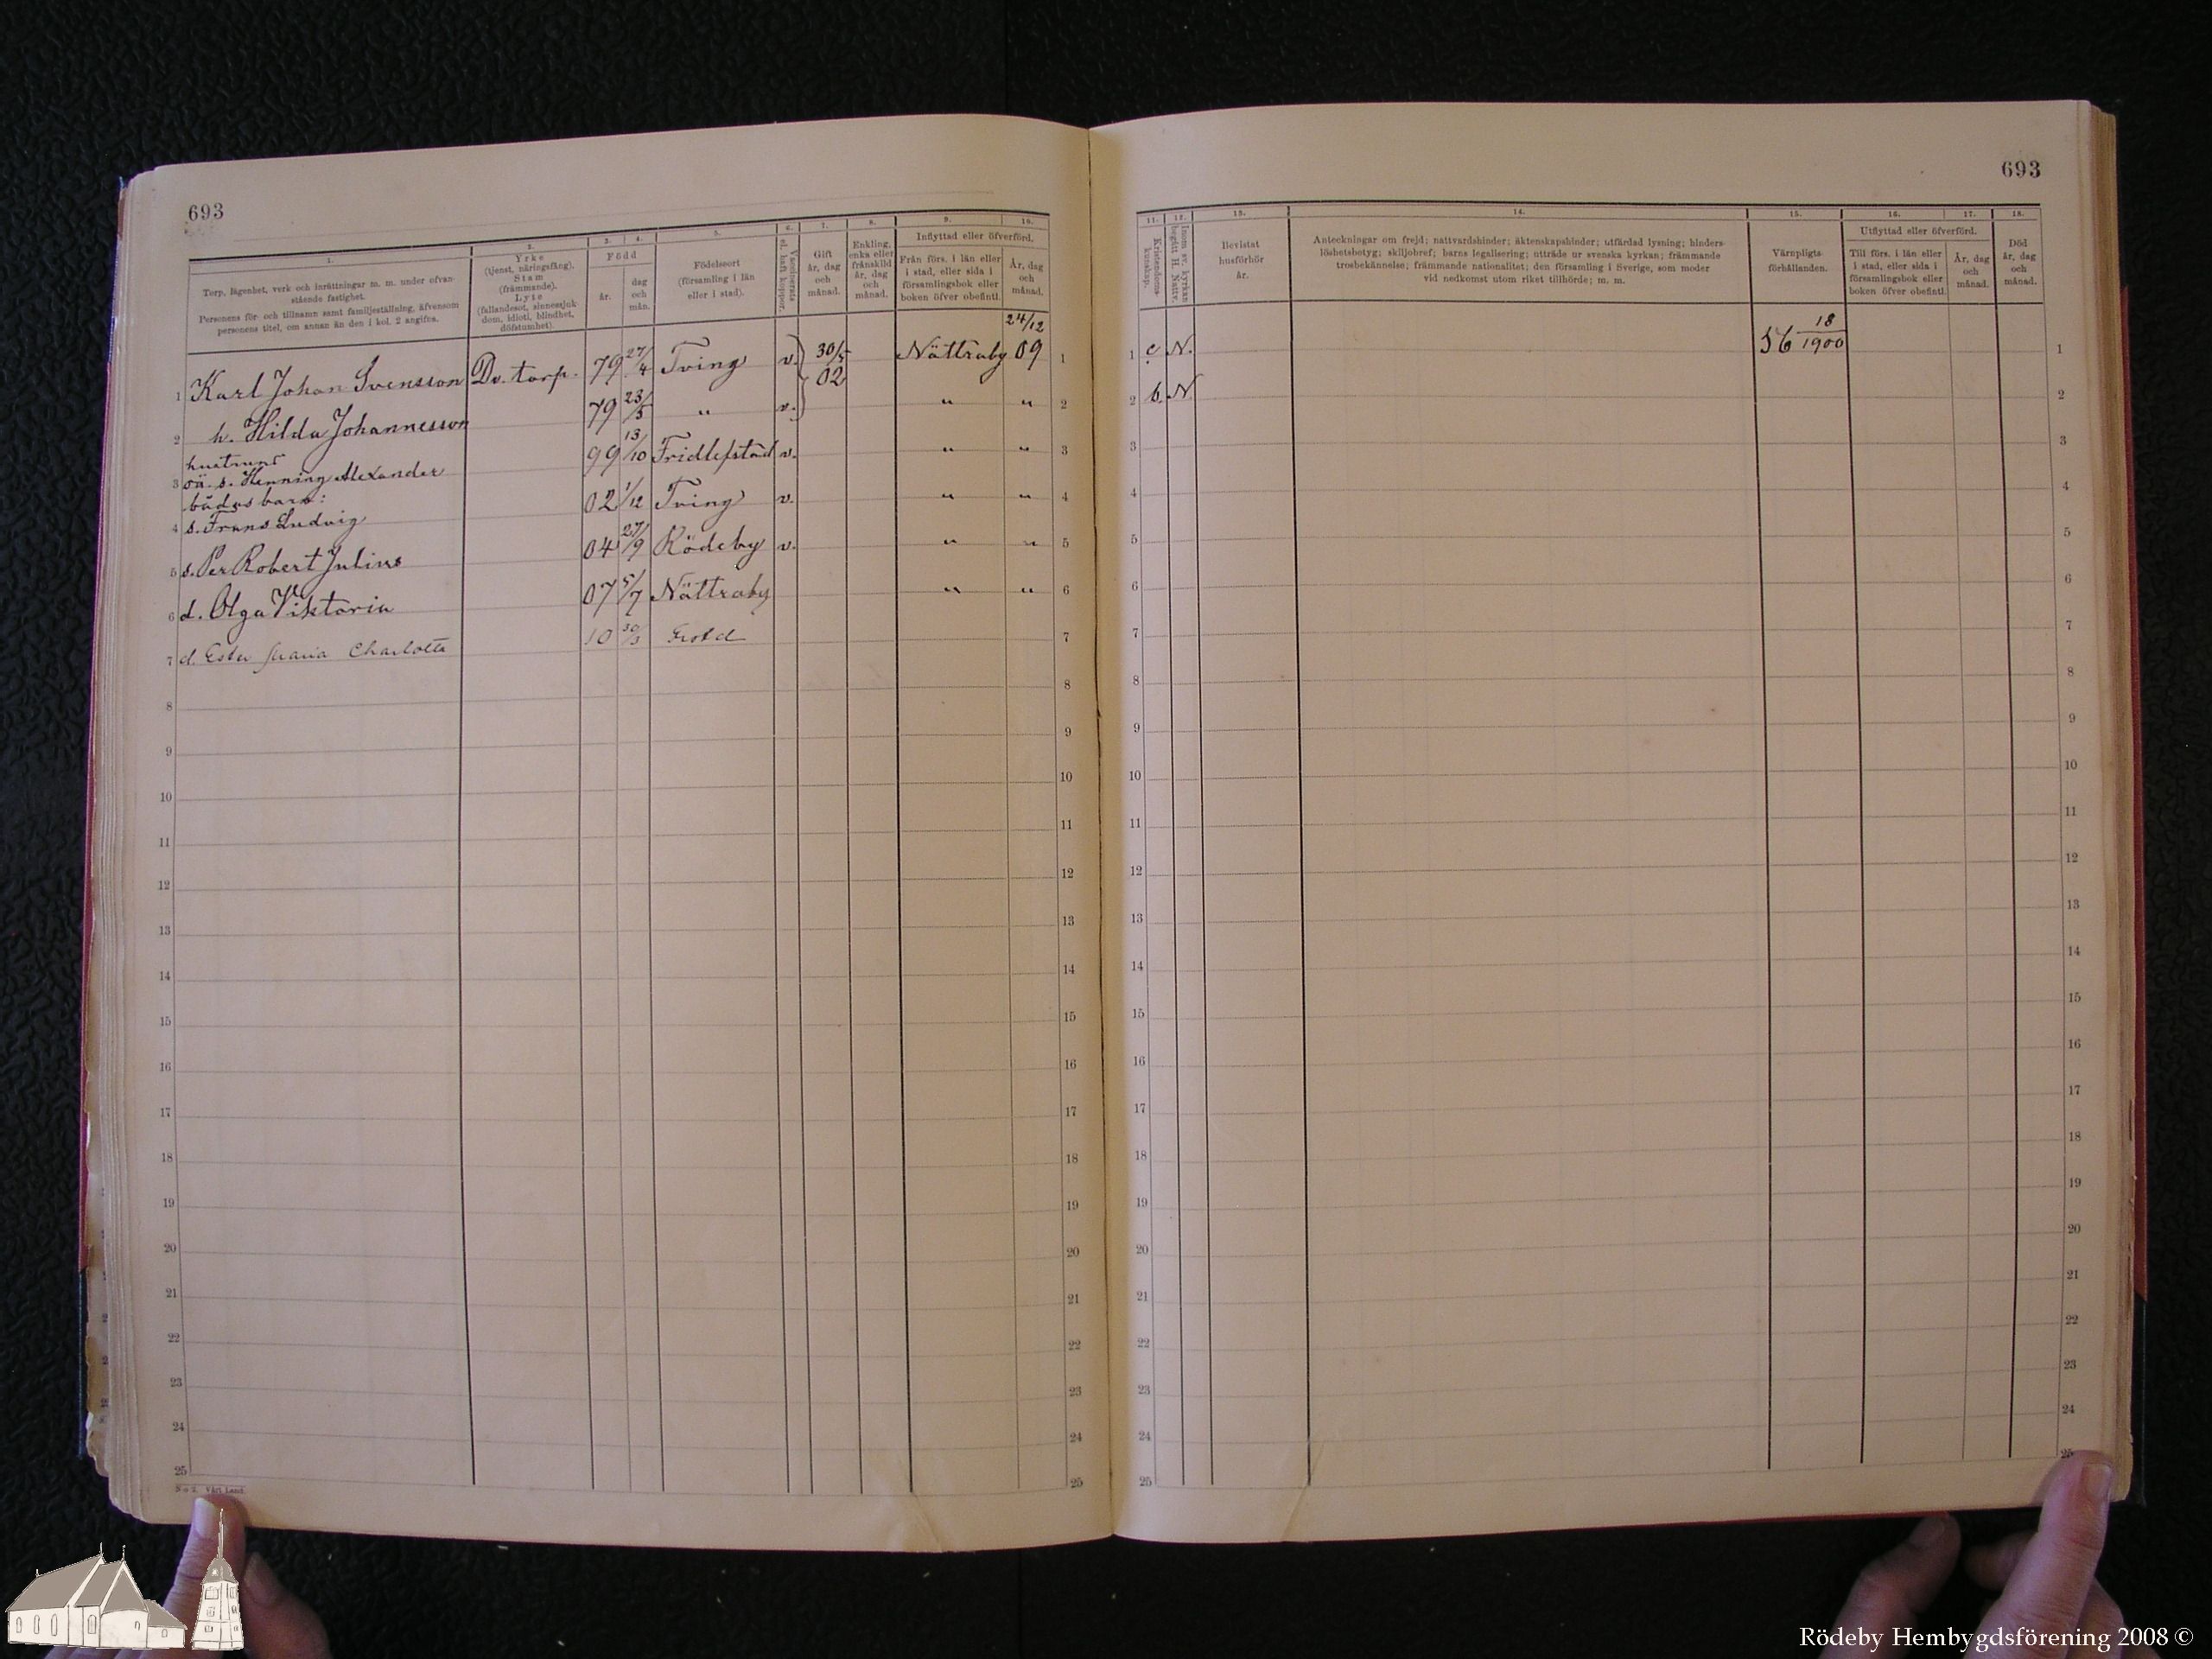 693
1.
Torp, lägenhet, verk och inrättningar m. m. under ofvan-
stående fastighet.
Personens för- och tillnamn samt familjeställning, äfvensom
personens titel, om annan än den i kol. 2 angifva.
2.
Yrke
(tjenst, näringsfång).
Stam
(främmande).
Lyte
(fallandesot, sinnessjuk-
dom, idioti, blindhet,
döfstumhet).
3.
4.
Född
år.
dag
och
mån.
5.
Födelseort
(församling i län
eller i stad).
6.
Vaccinerats
el. haft koppor.
7.
Gift
år, dag
och
månad.
8.
Enkling,
enka eller
frånskild
år, dag
och
månad.
9.
10.
Inflyttad eller öfverförd.
Från förs. i län eller
i stad, eller sida i
församlingsbok eller
boken öfver obefintl.
År, dag
och
månad.
1 Karl Johan Svensson Dv. torp. 79 27/4 Tving v. 30/5 02 Nättraby 24/12 09 1
2 h. Hilda Johannesson 79 23/5 " v. " " 2
hustruns
3 oä. s. Henning Alexander 99 13/10 Fridlefstad v. " " 3
bådas barn:
4 s. Frans Ludvig 02 1/12 Tving v. " " 4
5 s. Per Robert Julius 04 27/9 Rödeby v. " " 5
6 d. Olga Viktoria 07 5/7 Nättraby " " 6
7 d. Ester Maria Charlotta 10 30/3 7
8 8
9 9
10 10
11 11
12 12
13 13
14 14
15 15
16 16
17 17
18 18
19 19
20 20
21 21
22 22
23 23
24 24
25 25
No 2. Vårt Land.
693
11.
Kristendoms-
kunskap.
12.
Inom sv. kyrkan
begått H. Nattv.
13.
Bevistat
husförhör
år.
14.
Anteckningar om frejd; nattvardshinder; äktenskapshinder; utfärdad lysning; hinders-
löshetsbetyg; skiljobref; barns legalisering; utträde ur svenska kyrkan; främmande
trosbekännelse; främmande nationalitet; den församling i Sverige, som moder
vid nedkomst utom riket tillhörde; m. m.
15.
Värnpligts-
förhållanden.
16.
17.
Utflyttad eller öfverförd.
Till förs. i län eller
i stad, eller sida i
församlingsbok eller
boken öfver obefintl.
År, dag
och
månad.
18.
Död
år, dag
och
månad.
1 c N. 56 18/1900 1
2 b. N 2
3 3
4 4
5 5
6 6
7 7
8 8
9 9
10 10
11 11
12 12
13 13
14 14
15 15
16 16
17 17
18 18
19 19
20 20
21 21
22 22
23 23
24 24
25 25
Rödeby Hembygdsförening 2008 ©